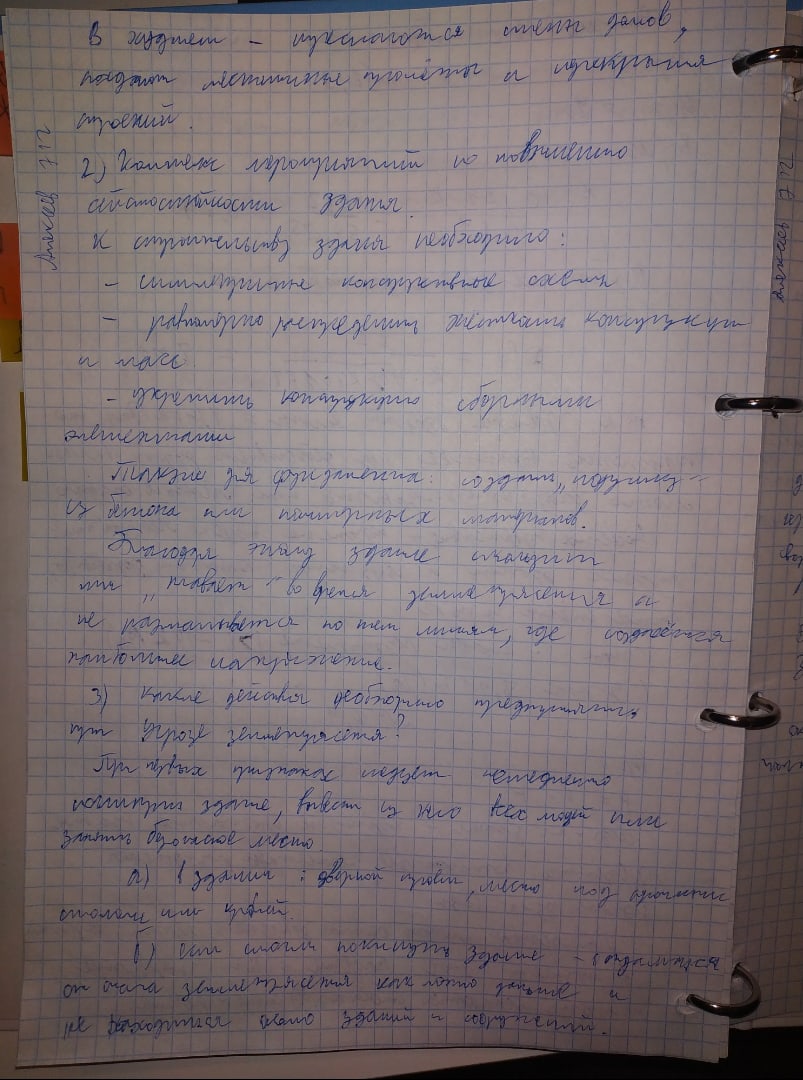 В худшем – стены домов,
лестничные пролёты и перекрытия
строений.
2) Комплекс мероприятий по повышению
сейсмостойкости здания.
К строительству здания необходимо:
– симметричные конструктивные схемы
– равномерно распределить жёсткость конструкций
и масс.
– укрепить конструкцию сборными
элементами
Также для фундамента: создать „подушку"
из бетона или материалов.
Благодаря этому здание
„плавает" во время землетрясения и
не разламывается по тем линиям, где создаётся
наибольшее напряжение.
3) Какие действия необходимо предпринять
при угрозе землетрясения?
При первых признаках следует немедленно
покинуть здание, вывести из него всех людей или
занять безопасное место
а) В здании: дверной проём, место под прочным
столом или кроватью.
б) если смогли покинуть здание – отдалиться
от очага землетрясения как можно дальше и
не находиться около зданий и сооружений.
Алексеев 712